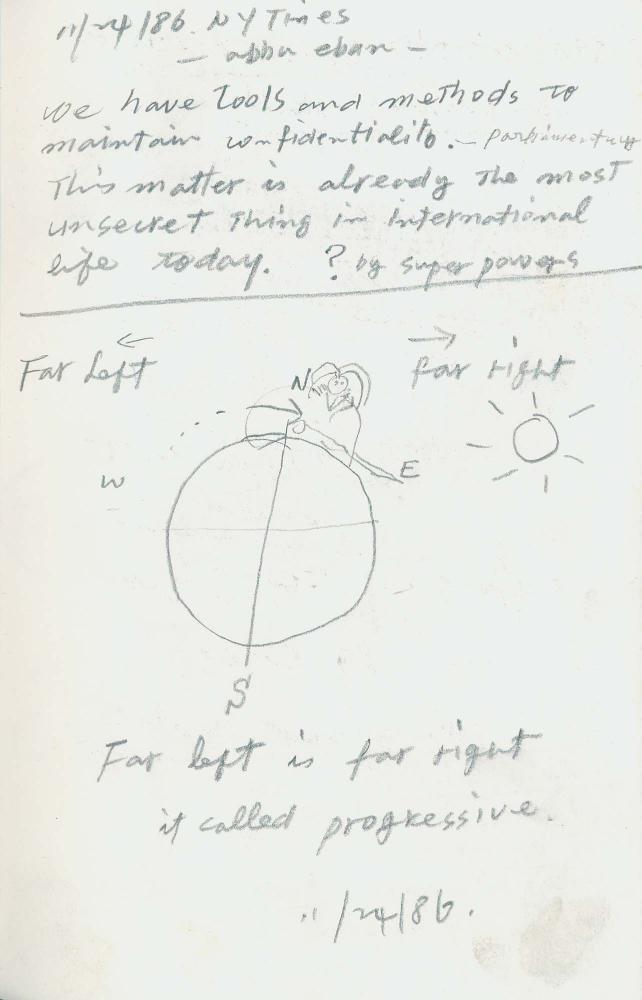 11/24/86. NY Times
— abba eban —
We have Tools and methods to
maintain confidentiality. —
This matter is already the most
unsecret Thing in international
life today. ? by super powers
← →
Far Left far right
N
E
W
S
Far left is far right
it called progressive.
11/24/86.